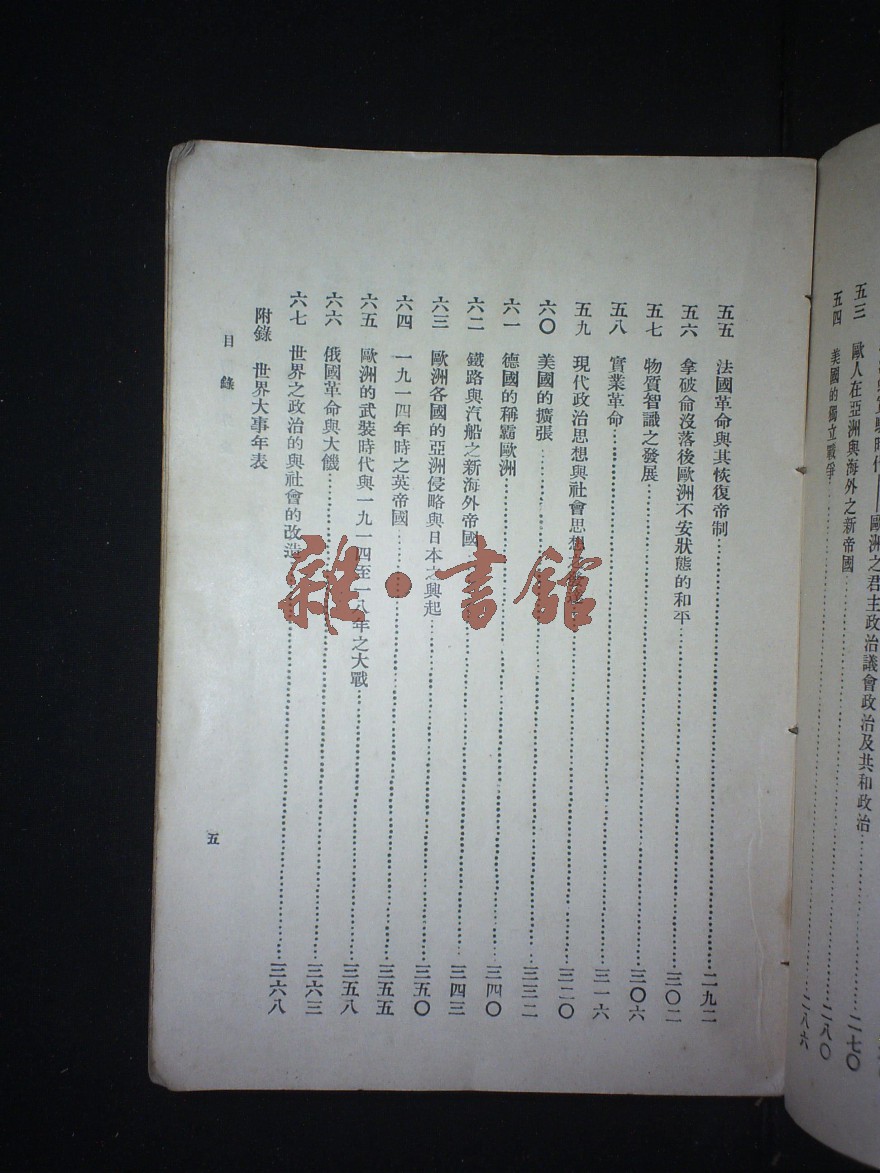 歐洲之君主政治議會政治及共和政治
五三 歐人在亞洲與海外之新帝國……二七〇
五四 美國的獨立戰爭……二八〇
二八六
五五 法國革命與其恢復帝制……二九二
五六 拿破侖沒落後歐洲不安狀態的和平……三〇二
五七 物質智識之發展……三〇六
五八 實業革命……三一六
五九 現代政治思想與社會思想……三二〇
六〇 美國的擴張……三三二
六一 德國的稱霸歐洲……三四〇
六二 鐵路與汽船之新海外帝國……三四三
六三 歐洲各國的亞洲侵略與日本之興起……三五〇
六四 一九一四年時之英帝國……三五五
六五 歐洲的武裝時代與一九一四至一八年之大戰……三五八
六六 俄國革命與大饑……三六三
六七 世界之政治的與社會的改造……三六八
附錄 世界大事年表
目錄
五
雜·書館